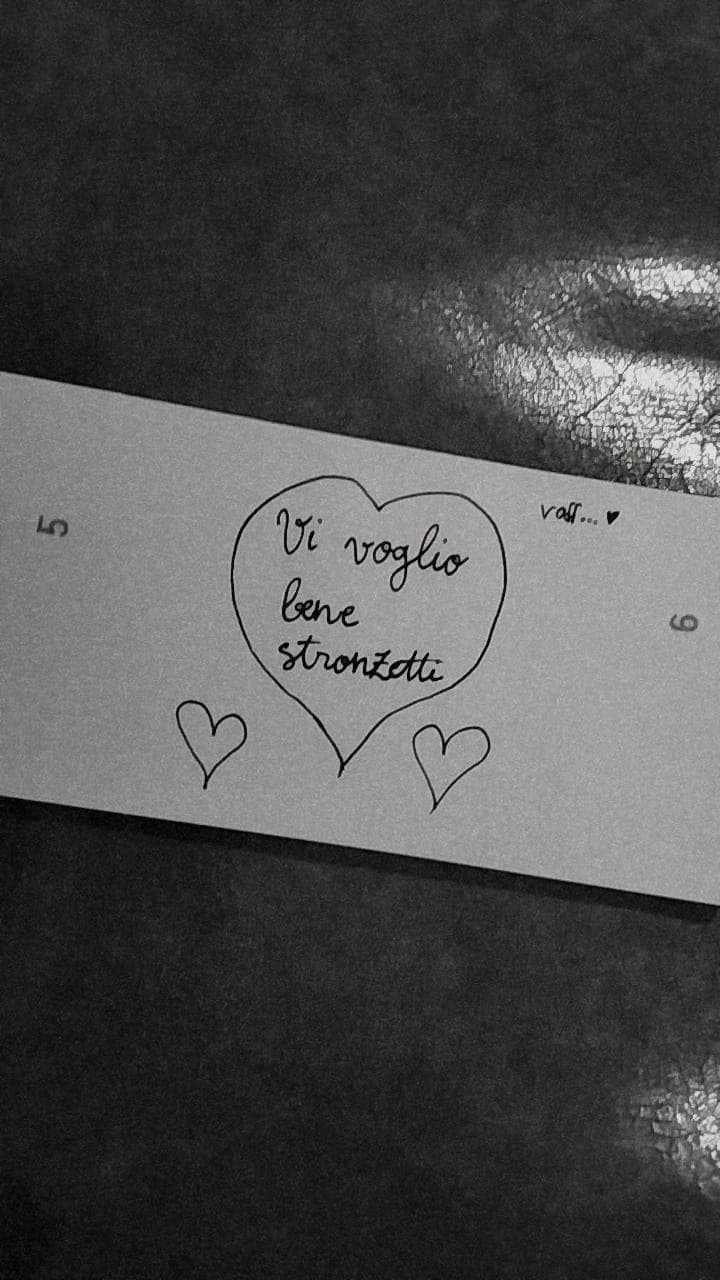 5
vaff... ♥
Vi voglio
bene
stronzetti
6